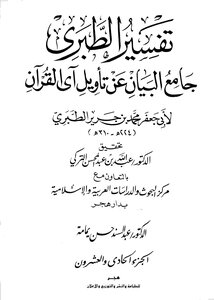 تفسير الطبرى
جامع البيان عن تأويل آى القرآن
لأبى جعفر محمد بن جرير الطبرى
(٢٢٤هـ - ٣١٠هـ)
تحقيق
الدكتور عبد الله بن عبد المحسن التركى
بالتعاون مع
مركز البحوث والدراسات العربية والإسلامية
بدار هجر
الدكتور عبد السند حسن يمامة
الجزء الحادى والعشرون
هجر
للطباعة والنشر والتوزيع والإعلان